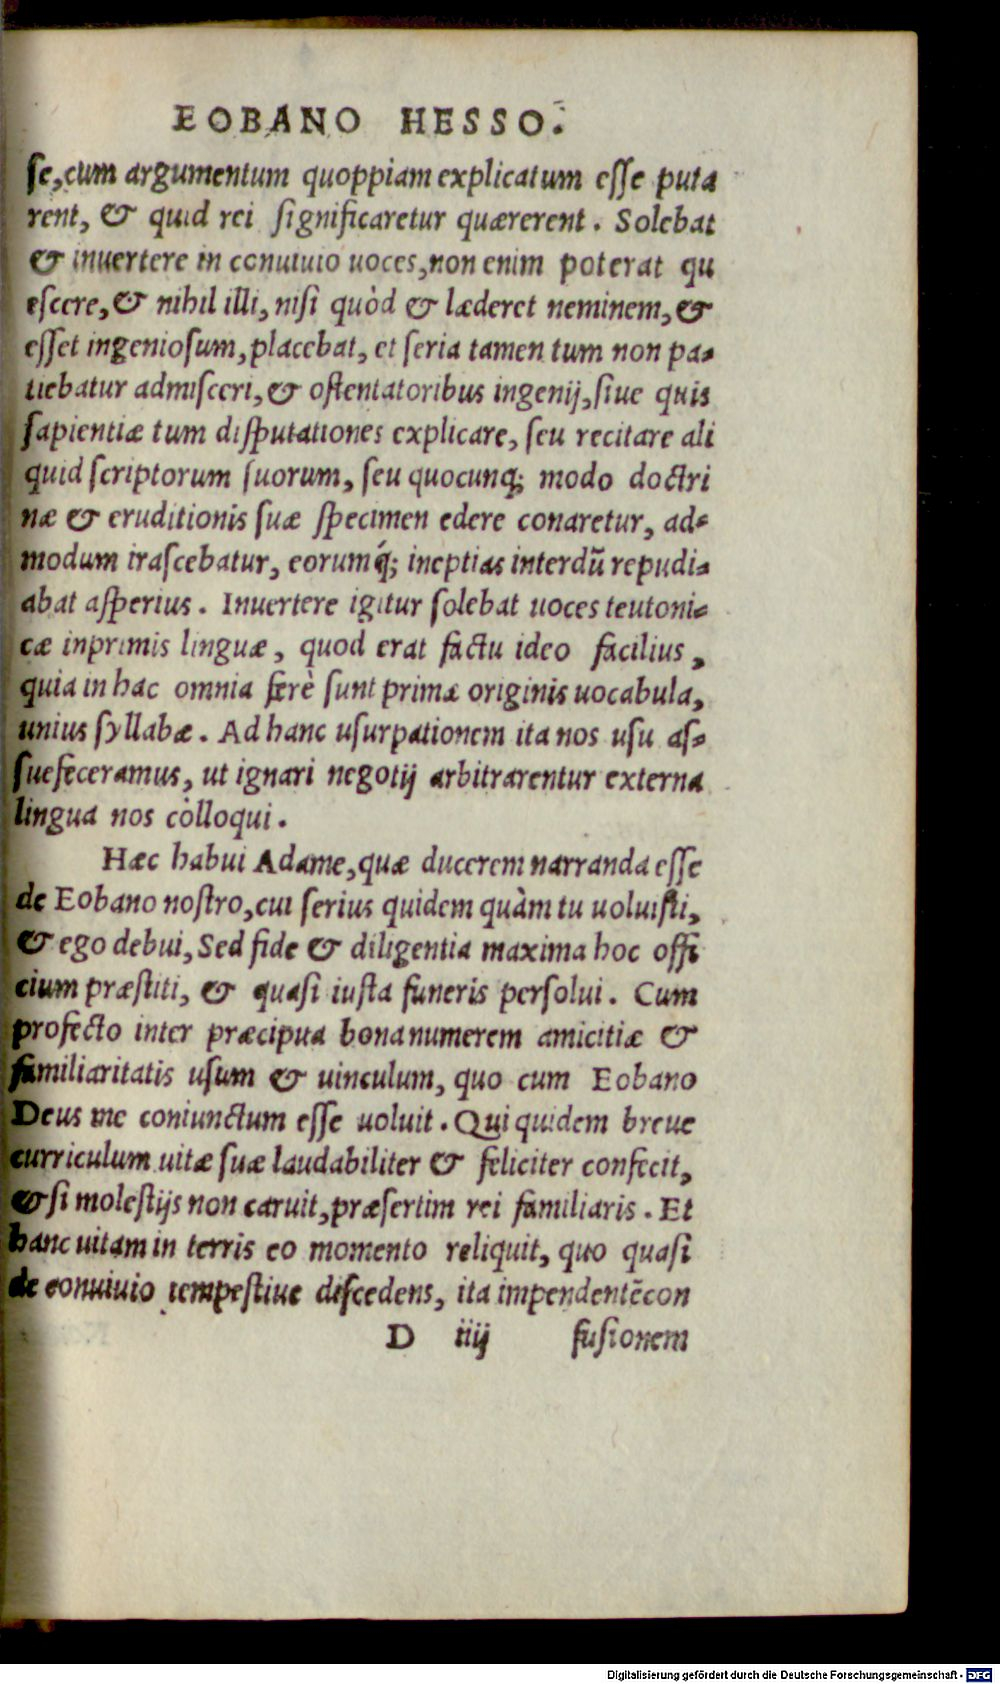 EOBANO HESSO.
se, cum argumentum quoppiam explicatum esse puta
rent, & quid rei significaretur quærerent. Solebat
& inuertere in conuiuio uoces, non enim poterat qu
escere, & nihil illi, nisi quòd & læderet neminem, &
esset ingeniosum, placebat, et seria tamen tum non pa-
tiebatur admisceri, & ostentatoribus ingenij, siue quis
sapientiæ tum disputationes explicare, seu recitare ali
quid scriptorum suorum, seu quocunq; modo doctri
næ & eruditionis suæ specimen edere conaretur, ad-
modum irascebatur, eorumq́; ineptias interdū repudi-
abat asperius. Inuertere igitur solebat uoces teutoni-
cæ inprimis linguæ, quod erat factu ideo facilius,
quia in hac omnia ferè sunt primæ originis uocabula,
unius syllabæ. Ad hanc usurpationem ita nos usu as-
suefeceramus, ut ignari negotij arbitrarentur externa
lingua nos còlloqui.
Hæc habui Adame, quæ ducerem narranda esse
de Eobano nostro, cui serius quidem quàm tu uoluisti,
& ego debui, Sed fide & diligentia maxima hoc offi
cium præstiti, & quasi iusta funeris persolui. Cum
profecto inter præcipua bona numerem amicitiæ &
familiaritatis usum & uinculum, quo cum Eobano
Deus me coniunctum esse uoluit. Qui quidem breue
curriculum uitæ suæ laudabiliter & feliciter confecit,
& si molestijs non caruit, præsertim rei familiaris. Et
hanc uitam in terris eo momento reliquit, quo quasi
de conuiuio tempestiue discedens, ita impendentē con
D iiij fusionem
Digitalisierung gefördert durch die Deutsche Forschungsgemeinschaft - DFG